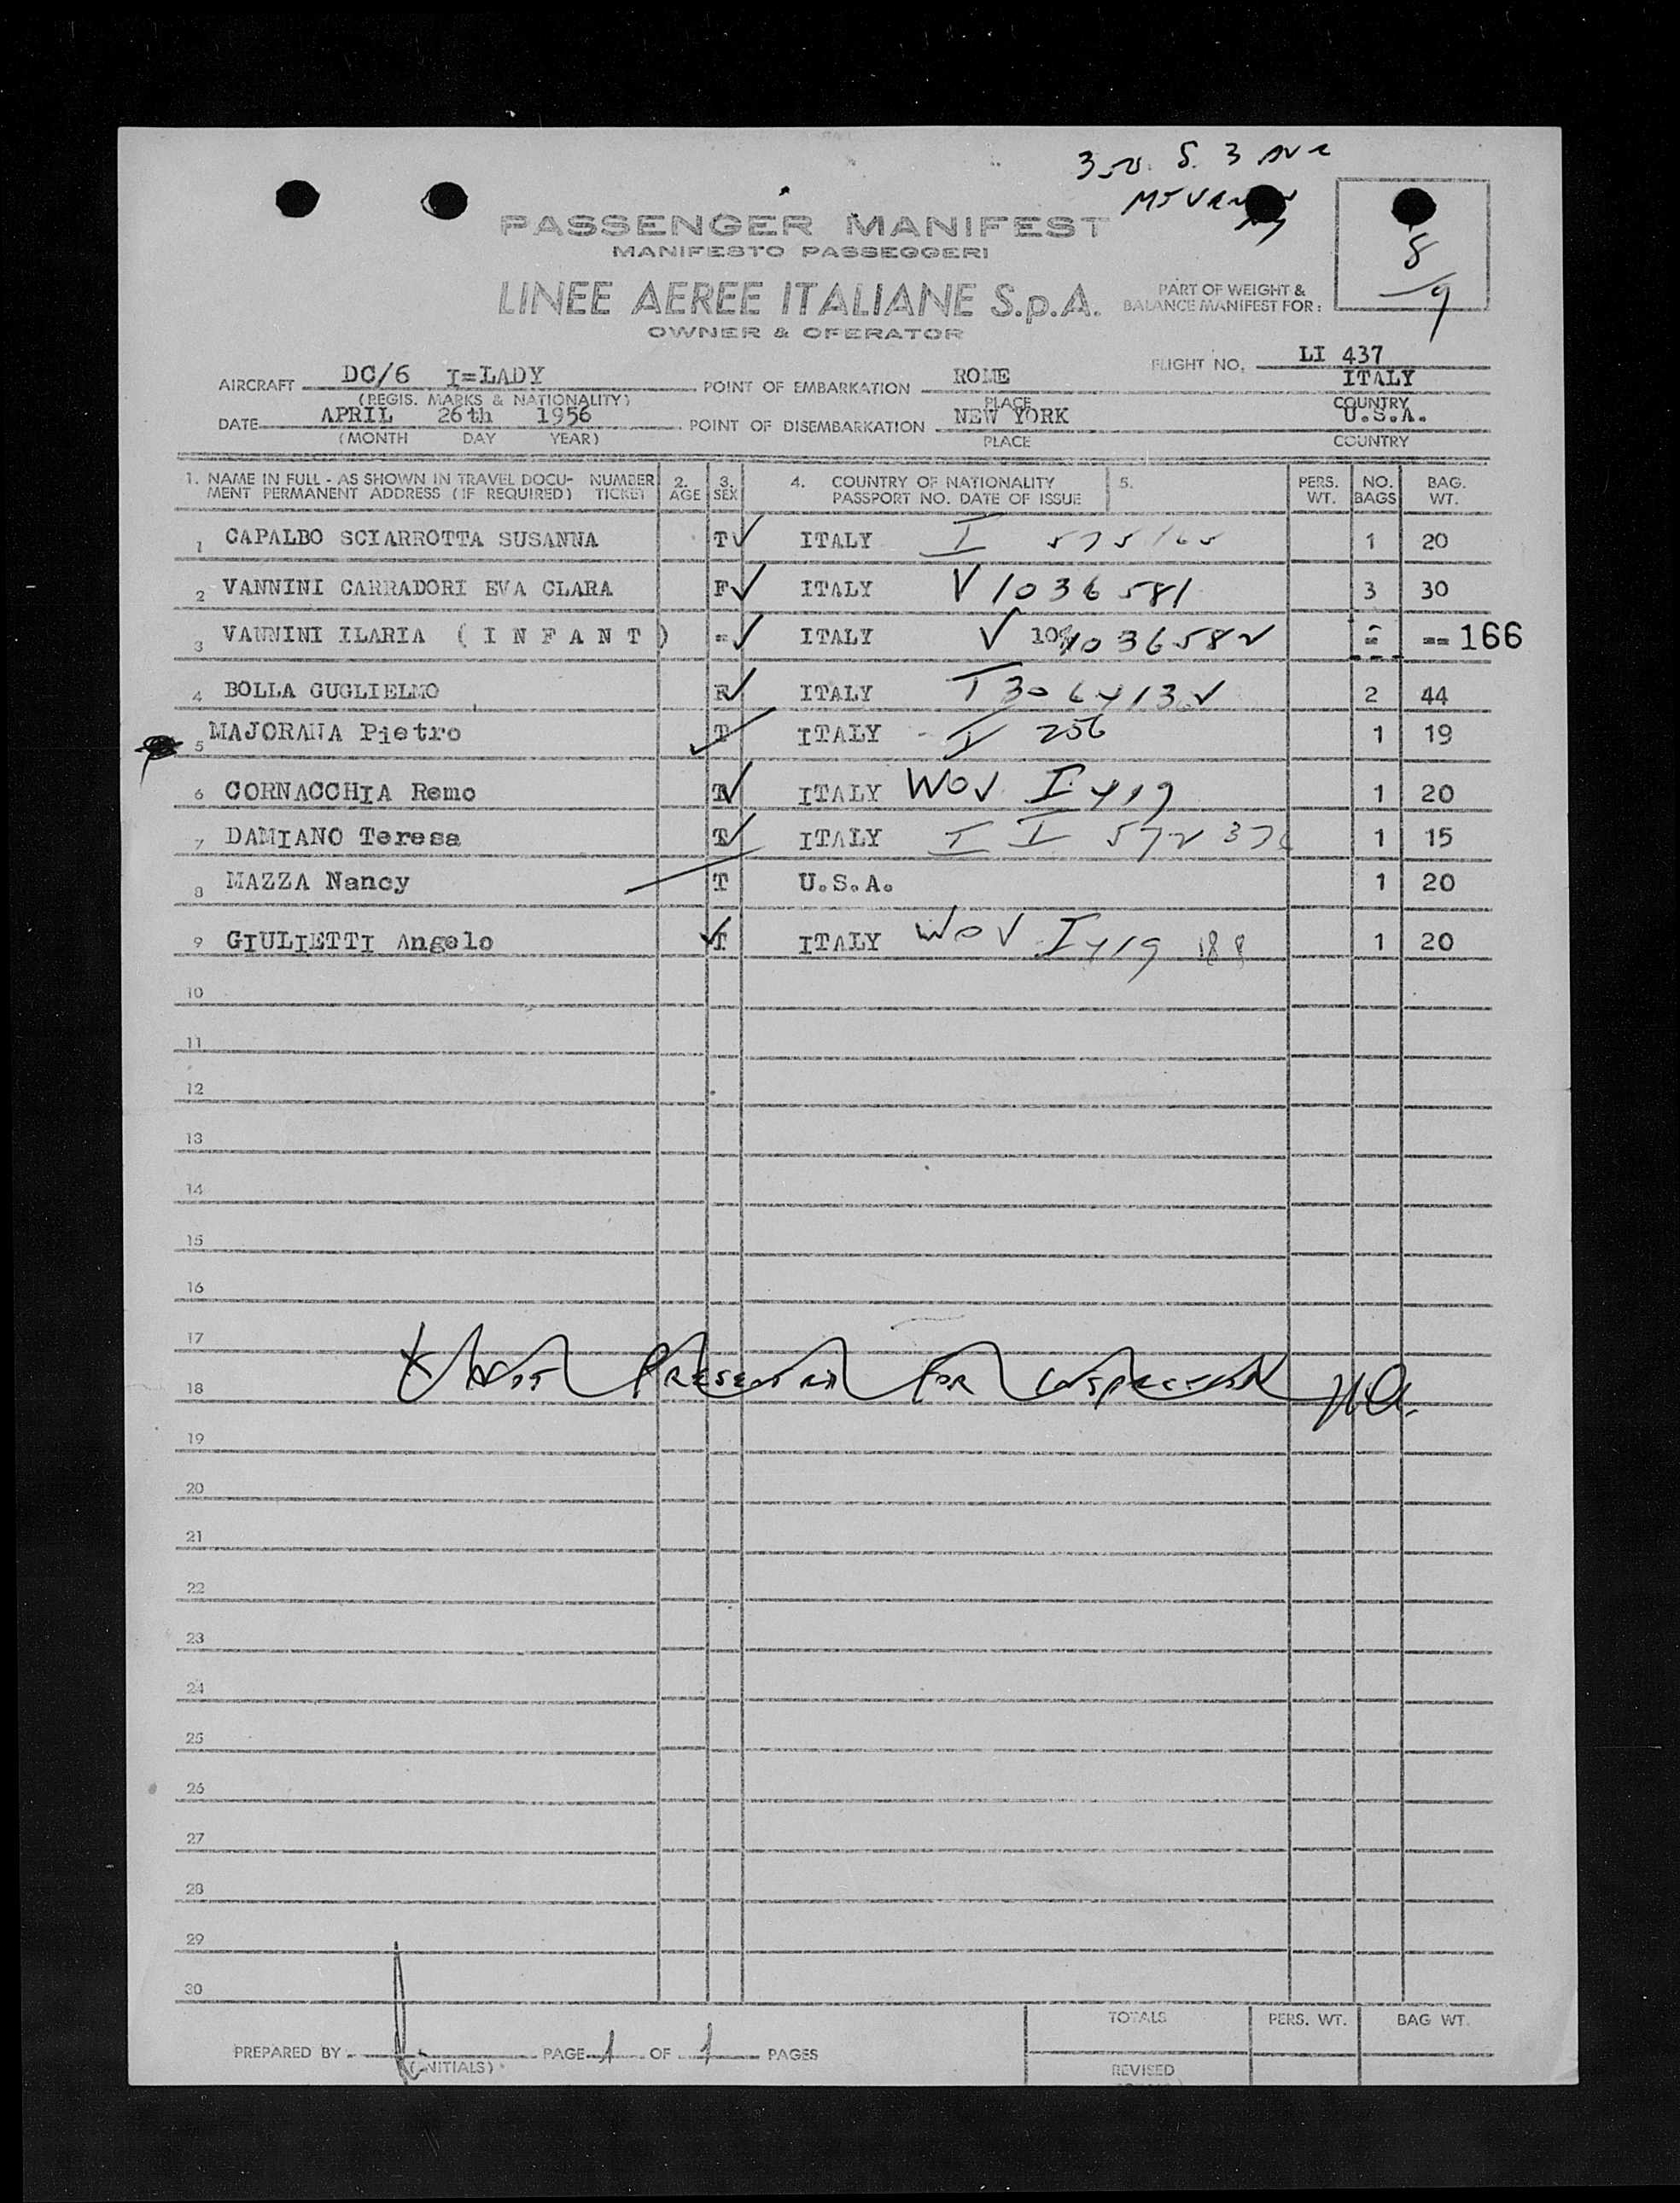 350 S. 3 Ave
PASSENGER MANIFEST
MANIFESTO PASSEGGERI
8
LINEE AEREE ITALIANE S.p.A.
PART OF WEIGHT &
BALANCE MANIFEST FOR:
9
OWNER & OPERATOR
FLIGHT NO. LI 437
AIRCRAFT DC/6 I=LADY POINT OF EMBARKATION ROME ITALY
(REGIS. MARKS & NATIONALITY) PLACE COUNTRY
DATE APRIL 26th 1956 POINT OF DISEMBARKATION NEW YORK U.S.A.
(MONTH DAY YEAR) PLACE COUNTRY
1. NAME IN FULL - AS SHOWN IN TRAVEL DOCU- NUMBER 2. 3. 4. COUNTRY OF NATIONALITY 5. PERS. NO. BAG.
MENT PERMANENT ADDRESS (IF REQUIRED) TICKET AGE SEX PASSPORT NO. DATE OF ISSUE WT. BAGS WT.
1 CAPALBO SCIARROTTA SUSANNA T ITALY I 1 20
2 VANNINI CARRADORI EVA CLARA F ITALY V 1036581 3 30
3 VANNINI ILARIA ( I N F A N T ) = ITALY V 1036582 = == 166
4 BOLLA GUGLIELMO ITALY 2 44
5 MAJORANA Pietro T ITALY 256 1 19
6 CORNACCHIA Remo T ITALY WOV I 419 1 20
7 DAMIANO Teresa T ITALY I I 1 15
8 MAZZA Nancy T U.S.A. 1 20
9 GIULIETTI Angelo T ITALY WOV I 419 188 1 20
10
11
12
13
14
15
16
17
NOT PRESENTED FOR INSPECTION
18
19
20
21
22
23
24
25
26
27
28
29
30
TOTALS PERS. WT. BAG WT.
PREPARED BY PAGE 1 OF 1 PAGES
(INITIALS) REVISED